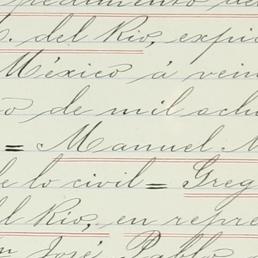 pedimento de
. del Rio, expi
México á vein
o de mil ocho
= Manuel.
de lo civil = Greg
el Rio, en repre
n José Pablo